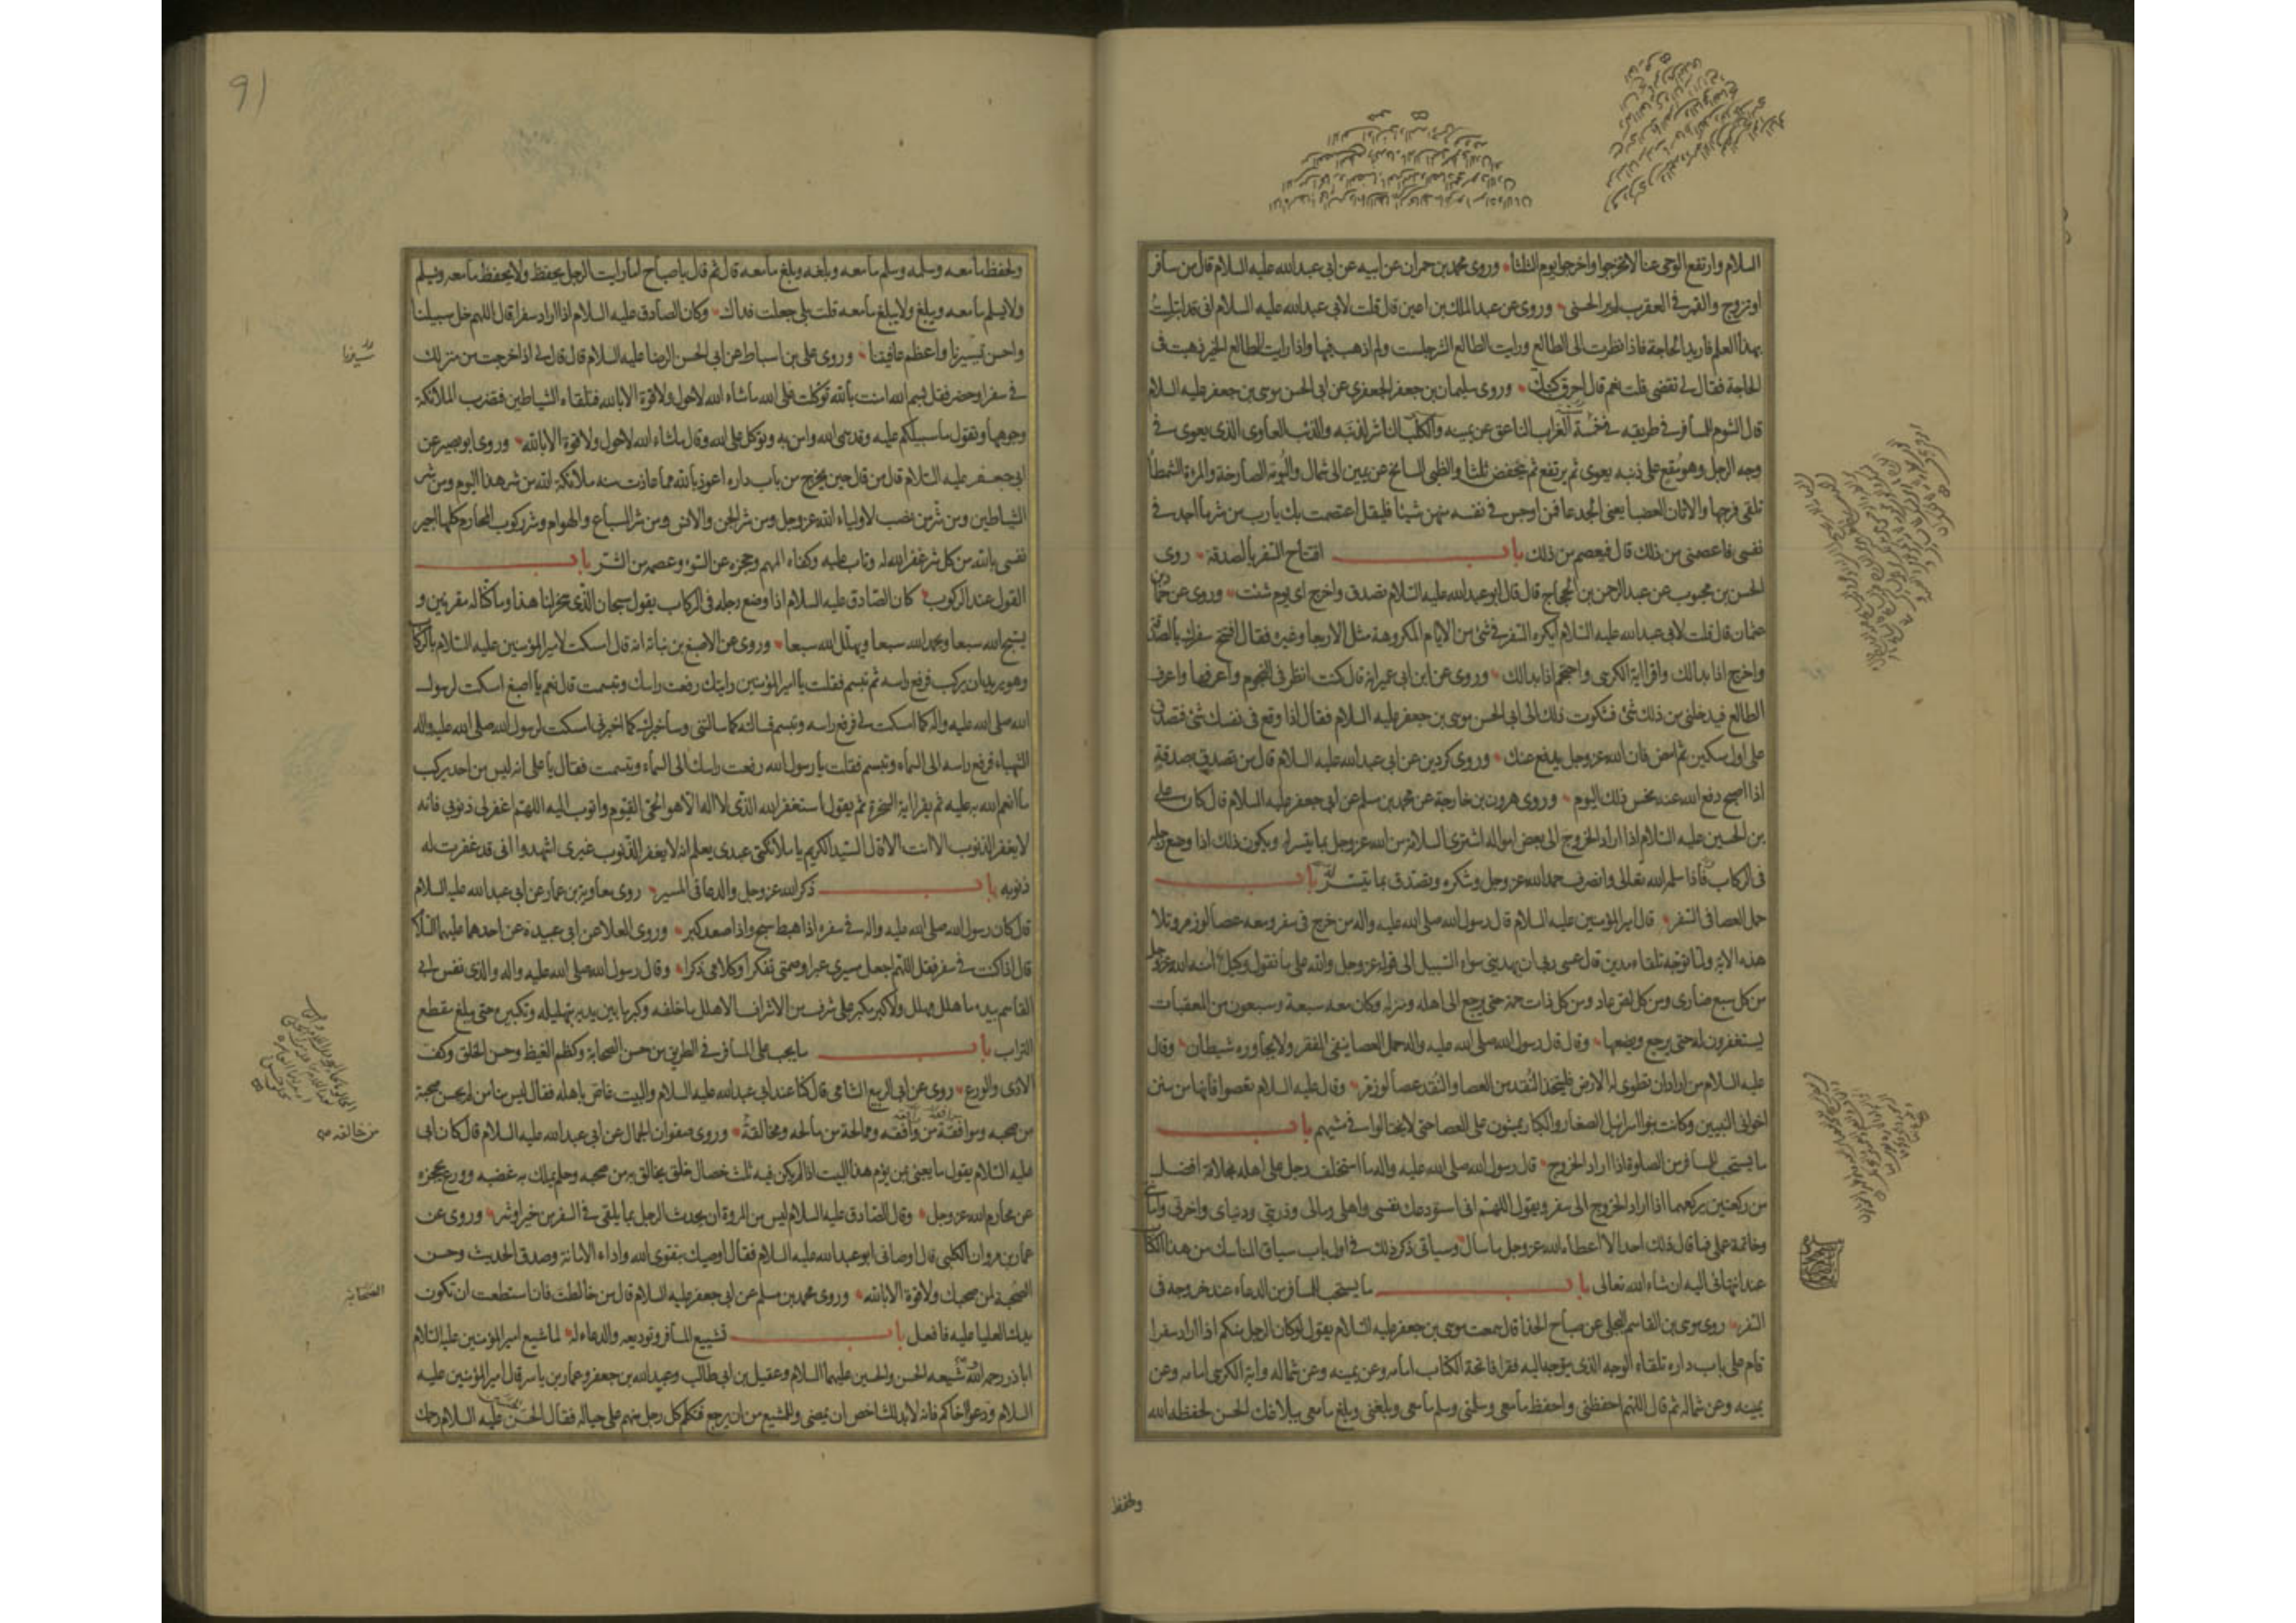 السلام وارتفع الوحى عنا لاتخرجوا واخرجوا يوم الثلثا وروى محمد بن حمران عن ابيه عن ابى عبد الله عليه السلام قال من سافر
او تزوج والقمر فى العقرب لم ير الحسنى وروى عن عبد الملك بن اعين قال قلت لابى عبد الله عليه السلام انى قد ابتليت
بهذا العلم فاريد الحاجة فاذا نظرت الى الطالع ورايت الطالع الشر جلست ولم اذهب فيها واذا رايت الطالع الخير ذهبت فى
الحاجة فقال لى تقضى قلت نعم قال احرق كتبك وروى سليمان بن جعفر الجعفرى عن ابى الحسن موسى بن جعفر عليه السلام
قال الشوم للمسافر فى طريقه فى خمسة الغراب الناعق عن يمينه والكلب الناشر لذنبه والذئب العاوى الذى يعوى فى
وجه الرجل وهو مقع على ذنبه يعوى ثم يرتفع ثم ينخفض ثلثا والظبى السانح عن يمين الى شمال والبومة الصارخة والمرءة الشمطا
تلقى فرجها والاتان العضبا يعنى الجدعا فمن اوجس فى نفسه منهن شيئا فليقل اعتصمت بك يا رب من شر ما اجد فى
نفسى فاعصمنى من ذلك قال فيعصم من ذلك باب افتتاح السفر بالصدقة روى
الحسن بن محبوب عن عبد الرحمن بن الحجاج قال قال ابو عبد الله عليه السلام تصدق واخرج اى يوم شئت وروى عن حماد بن
عثمان قال قلت لابى عبد الله عليه السلام ايكره السفر فى شئ من الايام المكروهة مثل الاربعا وغيره فقال افتتح سفرك بالصدقة
واخرج اذا بدا لك واقرا اية الكرسى واحتجم اذا بدا لك وروى عن ابن ابى عمير انه قال كنت انظر فى النجوم واعرفها واعرف
الطالع فيدخلنى من ذلك شئ فشكوت ذلك الى ابى الحسن موسى بن جعفر عليه السلام فقال اذا وقع فى نفسك شئ فتصدق
على اول مسكين ثم امض فان الله عز وجل يدفع عنك وروى كردين عن ابى عبد الله عليه السلام قال من تصدق بصدقة
اذا اصبح دفع الله عنه نحس ذلك اليوم وروى هرون بن خارجة عن محمد بن مسلم عن ابى جعفر عليه السلام قال كان على
بن الحسين عليه السلام اذا اراد الخروج الى بعض امواله اشترى السلامة من الله عز وجل بما يتيسر له ويكون ذلك اذا وضع رجله
فى الركاب فاذا سلمه الله تعالى وانصرف حمد الله عز وجل وشكره وتصدق بما تيسر له باب
حمل العصا فى السفر قال امير المؤمنين عليه السلام قال رسول الله صلى الله عليه واله من خرج فى سفر ومعه عصا لوز مر وتلا
هذه الاية ولما توجه تلقاء مدين قال عسى ربى ان يهدينى سواء السبيل الى قوله عز وجل والله على ما نقول وكيل امنه الله عز وجل
من كل سبع ضارى ومن كل لص عاد ومن كل ذات حمة حتى يرجع الى اهله ومنزله وكان معه سبعة وسبعون من المعقبات
يستغفرون له حتى يرجع ويضعها وقال قال رسول الله صلى الله عليه واله حمل العصا ينفى الفقر ولا يجاوره شيطان وقال
عليه السلام من اراد ان تطوى له الارض فليتخذ النقد من العصا والنقد عصا لوز مر وقال عليه السلام تعصوا فانها من سنن
اخوانى النبيين وكانت بنو اسرائيل الصغار والكبار يمشون على العصا حتى لا يختالوا فى مشيهم باب
ما يستحب للمسافر من الصلوة اذا اراد الخروج قال رسول الله صلى الله عليه واله ما استخلف رجل على اهله بخلافة افضل
من ركعتين يركعهما اذا اراد الخروج الى سفر ويقول اللهم انى استودعك نفسى واهلى ومالى وذريتى ودنياى واخرتى وامانتى
وخاتمة عملى فما قال ذلك احد الا اعطاه الله عز وجل ما سال وسياتى ذكر ذلك فى اول باب سياق المناسك من هذا الكتاب
عند انتهائى اليه ان شاء الله تعالى باب ما يستحب للمسافر من الدعاء عند خروجه فى
السفر روى موسى بن القاسم البجلى عن صباح الحذا قال سمعت موسى بن جعفر عليه السلام يقول لو كان الرجل منكم اذا اراد سفرا
قام على باب داره تلقاء الوجه الذى يتوجه اليه فقرا فاتحة الكتاب امامه وعن يمينه وعن شماله واية الكرسى امامه وعن
يمينه وعن شماله ثم قال اللهم احفظنى واحفظ ما معى وسلمنى وسلم ما معى وبلغنى وبلغ ما معى ببلاغك الحسن لحفظه الله
ولحفظ
91
ولحفظ ما معه وسلمه وسلم ما معه وبلغه وبلغ ما معه قال ثم قال يا صباح اما رايت الرجل يحفظ ولا يحفظ ما معه ويسلم
ولا يسلم ما معه ويبلغ ولا يبلغ ما معه قلت بلى جعلت فداك وكان الصادق عليه السلام اذا اراد سفرا قال اللهم خل سبيلنا
واحسن تسييرنا واعظم عافيتنا وروى على بن اسباط عن ابى الحسن الرضا عليه السلام قال قال لى اذا خرجت من منزلك
فى سفر او حضر فقل بسم الله امنت بالله توكلت على الله ما شاء الله لا حول ولا قوة الا بالله فتلقاه الشياطين فتضرب الملائكة
وجوهها وتقول ما سبيلكم عليه وقد سمى الله وامن به وتوكل على الله وقال ما شاء الله لا حول ولا قوة الا بالله وروى ابو بصير عن
ابى جعفر عليه السلام قال من قال حين يخرج من باب داره اعوذ بالله مما عاذت منه ملائكة الله من شر هذا اليوم ومن شر
الشياطين ومن شر من نصب لاولياء الله عز وجل ومن شر الجن والانس ومن شر السباع والهوام وشر ركوب المحارم كلها اجير
نفسى بالله من كل شر غفر الله له وتاب عليه وكفاه المهم وحجزه عن السوء وعصمه من الشر باب
القول عند الركوب كان الصادق عليه السلام اذا وضع رجله فى الركاب يقول سبحان الذى سخر لنا هذا وما كنا له مقرنين و
يسبح الله سبعا ويحمد الله سبعا ويهلل الله سبعا وروى عن الاصبغ بن نباتة انه قال امسكت لامير المؤمنين عليه السلام بالركاب
وهو يريد ان يركب فرفع راسه ثم تبسم فقلت يا امير المؤمنين رايتك رفعت راسك وتبسمت قال نعم يا اصبغ امسكت لرسول
الله صلى الله عليه واله كما امسكت لى فرفع راسه وتبسم فسالته كما سالتنى وساخبرك كما اخبرنى امسكت لرسول الله صلى الله عليه واله
الشهباء فرفع راسه الى السماء وتبسم فقلت يا رسول الله رفعت راسك الى السماء وتبسمت فقال يا على انه ليس من احد يركب
ما انعم الله به عليه ثم يقرا اية السخرة ثم يقول استغفر الله الذى لا اله الا هو الحى القيوم واتوب اليه اللهم اغفر لى ذنوبى فانه
لا يغفر الذنوب الا انت الا قال السيد الكريم يا ملائكتى عبدى يعلم انه لا يغفر الذنوب غيرى اشهدوا انى قد غفرت له
ذنوبه باب ذكر الله عز وجل والدعا فى المسير روى معاوية بن عمار عن ابى عبد الله عليه السلام
قال كان رسول الله صلى الله عليه واله فى سفره اذا هبط سبح واذا صعد كبر وروى العلا عن ابى عبيدة عن احدهما عليهما السلام
قال اذا كنت فى سفر فقل اللهم اجعل مسيرى عبرا وصمتى تفكرا وكلامى ذكرا وقال رسول الله صلى الله عليه واله والذى نفس ابى
القاسم بيده ما هلل مهلل ولا كبر مكبر على شرف من الاشراف الا هلل ما خلفه وكبر ما بين يديه بتهليله وتكبيره حتى يبلغ مقطع
التراب باب ما يجب على المسافر فى الطريق من حسن الصحابة وكظم الغيظ وحسن الخلق وكف
الاذى والورع روى عن ابى الربيع الشامى قال كنا عند ابى عبد الله عليه السلام والبيت غاص باهله فقال ليس منا من لم يحسن صحبة
من صحبه وموافقة من وافقه وممالحة من مالحه ومخالقة وروى صفوان الجمال عن ابى عبد الله عليه السلام قال كان ابى
عليه السلام يقول ما يعبئ بمن يؤم هذا البيت اذا لم يكن فيه ثلث خصال خلق يخالق به من صحبه وحلم يملك به غضبه وورع يحجزه
عن محارم الله عز وجل وقال الصادق عليه السلام ليس من المروة ان يحدث الرجل بما يلقى فى السفر من خير او شر وروى عن
عمار بن مروان الكلبى قال اوصانى ابو عبد الله عليه السلام فقال اوصيك بتقوى الله واداء الامانة وصدق الحديث وحسن
الصحبة لمن صحبك ولا قوة الا بالله وروى محمد بن مسلم عن ابى جعفر عليه السلام قال من خالطت فان استطعت ان تكون
يدك العليا عليه فافعل باب تشييع المسافر وتوديعه والدعاء له لما شيع امير المؤمنين عليه السلام
ابا ذر رحمه الله شيعه الحسن والحسين عليهما السلام وعقيل بن ابى طالب وعبد الله بن جعفر وعمار بن ياسر قال امير المؤمنين عليه
السلام ودعوا اخاكم فانه لا بد للشاخص ان يمضى وللمشيع من ان يرجع فتكلم كل رجل منهم على حياله فقال الحسين عليه السلام رحمك
من خالقه
الصحابة